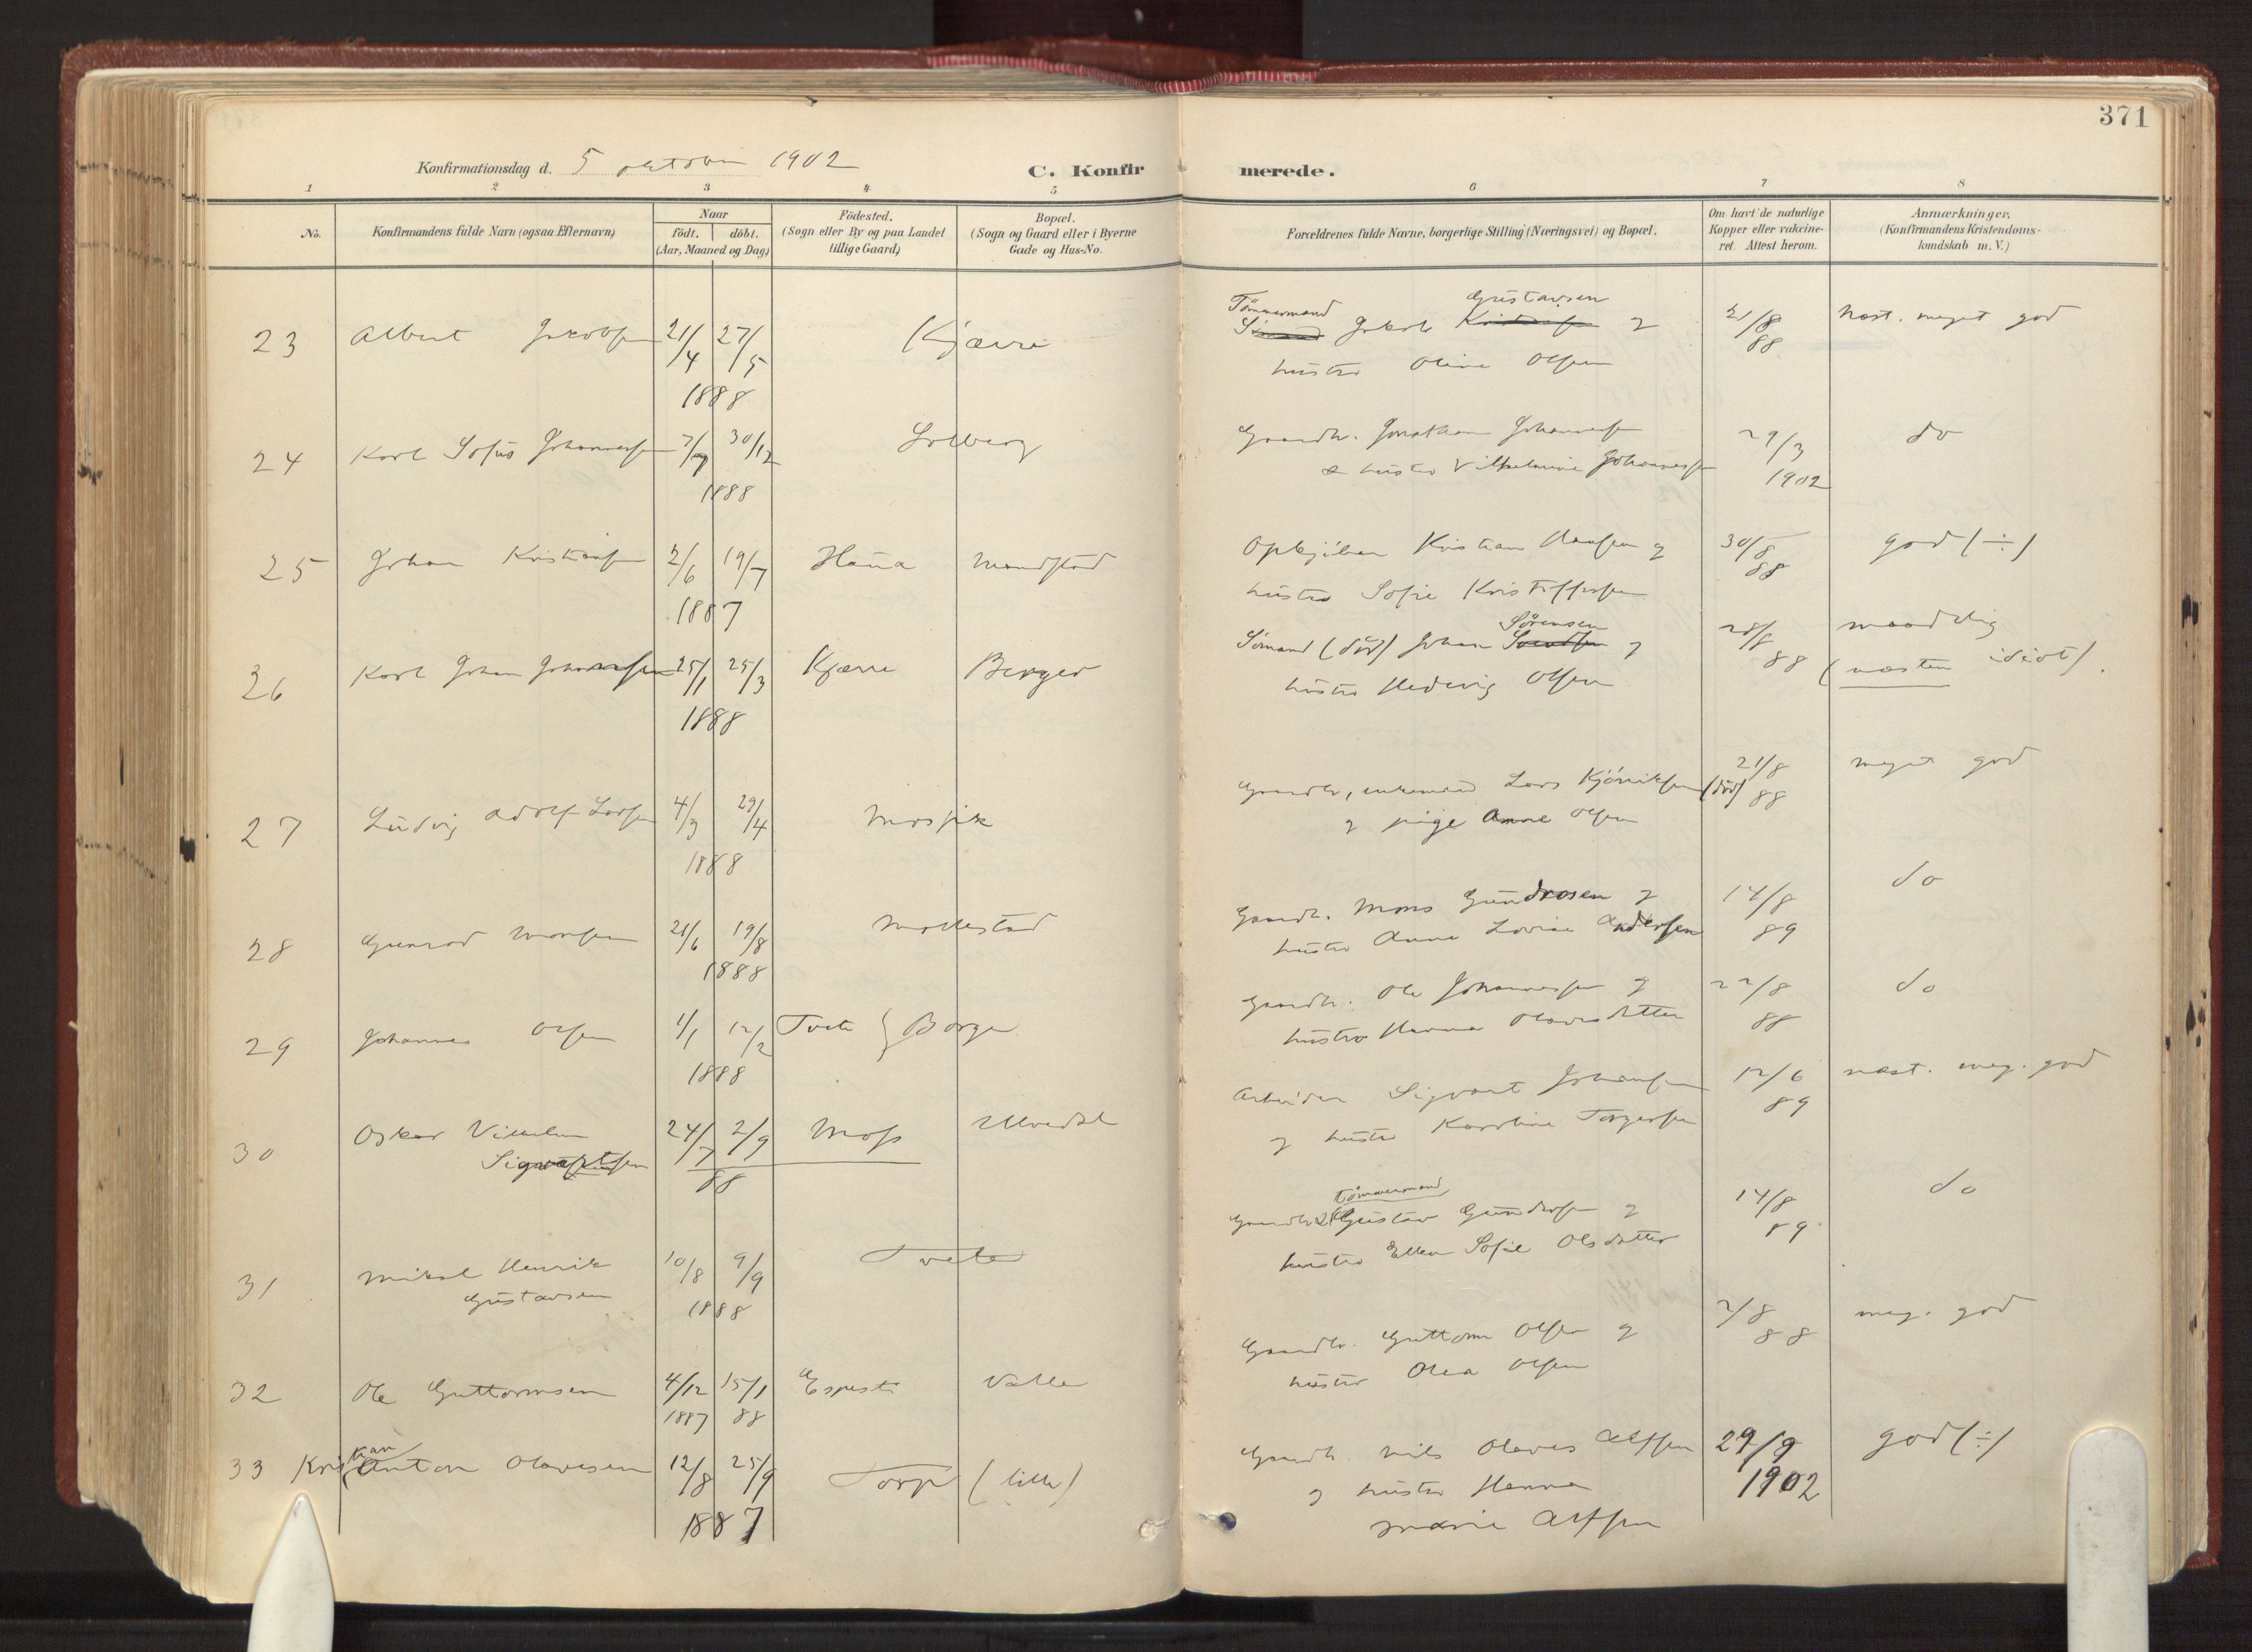 371
Konfirmationsdag d. 5 oktober 1902
C. Konfirmerede.
1 2 3 4 5 6 7 8
No.
Konfirmandens fulde Navn (ogsaa Efternavn)
Naar
födt. döbt.
(Aar, Maaned og Dag)
Födested.
(Sogn eller By og paa Landet
tillige Gaard)
Bopæl.
(Sogn og Gaard eller i Byerne
Gade og Hus-No.
Forældrenes fulde Navne, borgerlige Stilling (Næringsvei) og Bopæl.
Om havt de naturlige
Kopper eller vakcine-
ret. Attest herom.
Anmærkninger.
(Konfirmandens Kristendoms-
kundskab m. V.)
Tömmermand Gustavsen
23 Albert Jakobsen 21/4 27/5 Kjærre Jakob og 21/8 88 næst. meget god
1888 hustru Oline Olsen
24 Karl Sofus Johannessen 7/9 30/12 Solberg Gaardbr. Jonathan Johannessen 29/3 do
1888 & hustru Vilhelmine Johannessen 1902
25 Johan Kristiansen 2/6 19/7 Hana Opkjöber Kristian Hansen og 30/8 88 god (÷)
1887 hustru Sofie Kristoffersen
Sörensen
26 Karl Johan Johansen 25/1 25/3 Kjærre Berger Sömand (död) Johan og 28/8 88 maadelig
1888 hustru Hedevig Olsen (næsten idiot).
27 Ludvig Adolf Larsen 4/3 29/4 Gaardbr, enkemand Lars (död) 21/8 88 meget god
1888 og pige Anne Olsen
28 Gunerod Monsen 21/6 19/8 Mollestad Gaardbr. Mons Gundrosen og 14/8 do
1888 hustru Anne Lovise Andersen 89
29 Johannes Olsen 1/1 12/2 Tvete } Borge Gaardbr. Ole Johannessen og 22/8 do
1888 hustru Hanna Olavesdatter 88
30 Oskar Vilhelm 24/7 2/9 Moss Ulvedal Arbeider Sigvart Johansen 12/6 næst. meg. god
Sigvartsen 88 og hustru Karoline Torgersen 89
Tömmermand
31 Mikal Henrik 10/8 9/9 Tveta Gaardbr & Gustav Gundrosen og 14/8 do
Gustavsen 1888 hustru Ellen Sofie Olsdatter 89
32 Ole Guttormsen 4/12 15/1 Valle Gaardbr. Guttorm Olsen og 2/8 meg. god
1887 88 hustru Olea Olsen 88
33 Kristian Anton Olavesen 12/8 25/9 Torp (lille) Gaardbr. Nils Olaves Alfsen 29/9 god (÷)
1887 og hustru Hanna 1902
Marie Alfsen